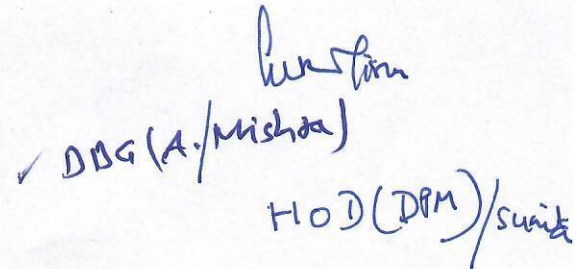 ✓ DBG (A./Mishra)
HOD (DPM)/Sunita